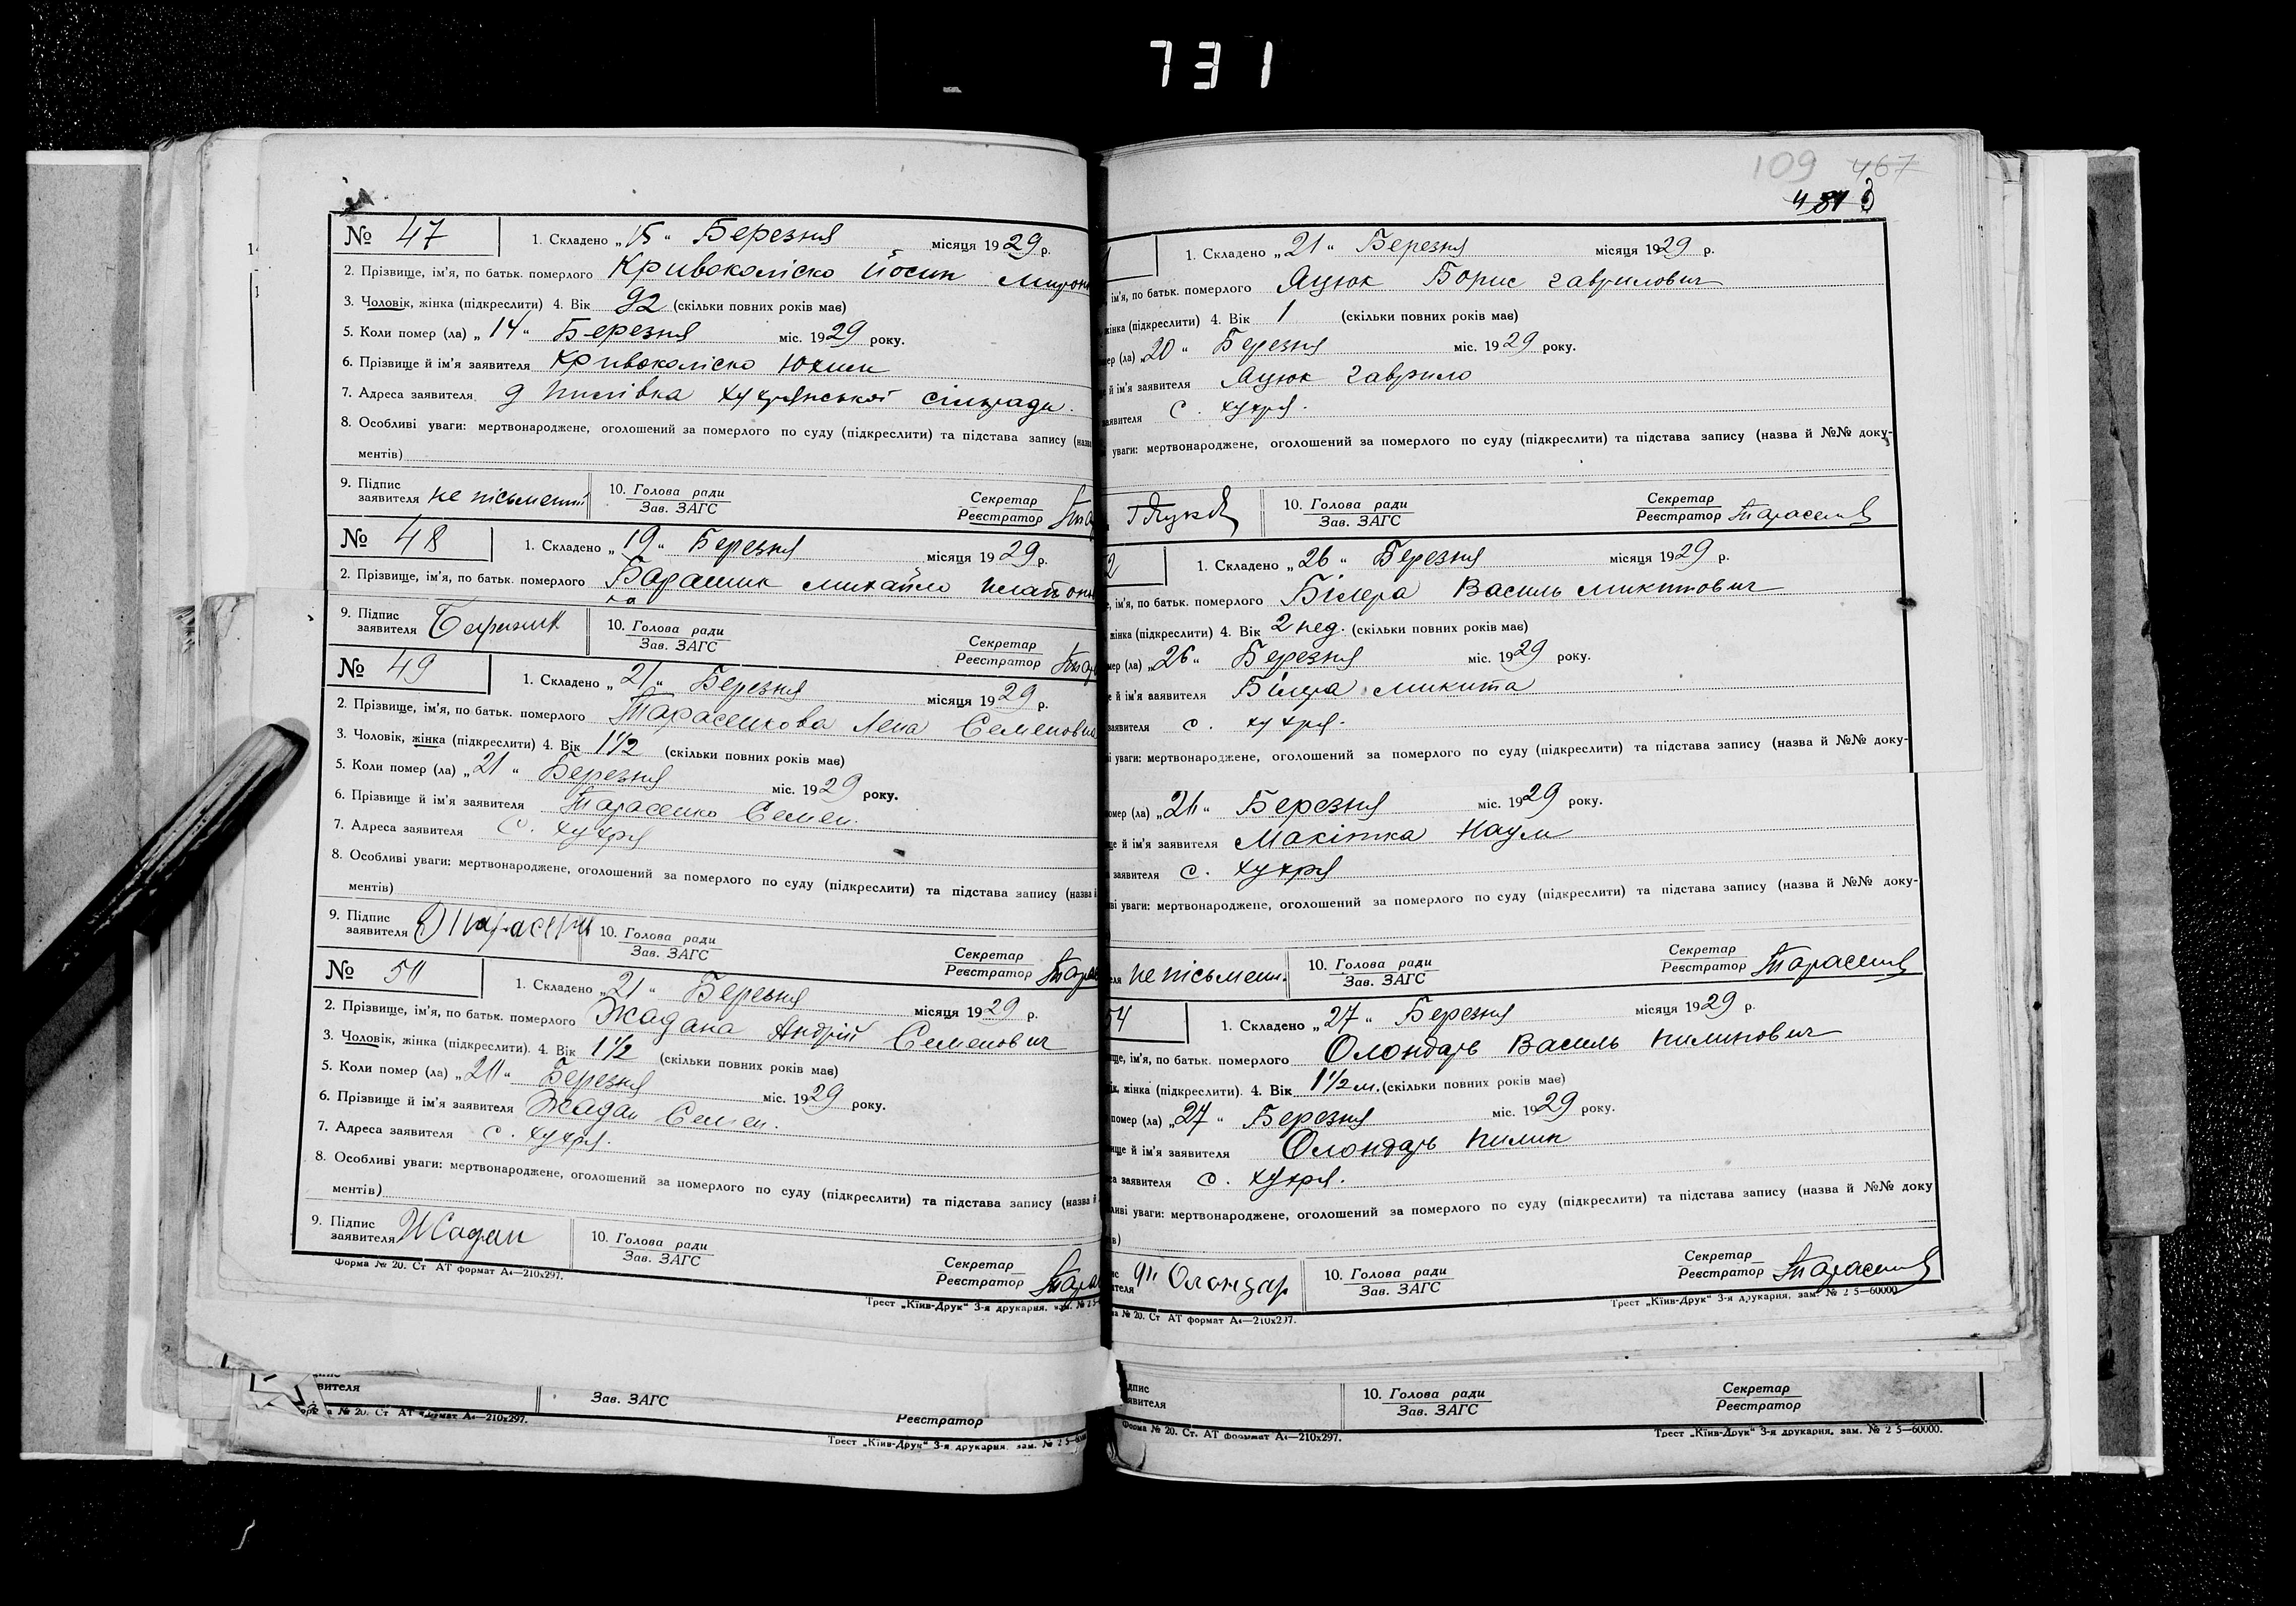 731
№ 47
1. Складено „15“ Березня місяця 1929 р.
2. Прізвище, ім'я, по батьк. померлого Кривоколіско Йосип Мирон
3. Чоловік, жінка (підкреслити) 4. Вік 92 (скільки повних років має)
5. Коли помер (ла) „14“ Березня міс. 1929 року.
6. Прізвище й ім'я заявителя Кривоколіско Юхим
7. Адреса заявителя д Пилівка Хухрянської сільради.
8. Особливі уваги: мертвонароджене, оголошений за померлого по суду (підкреслити) та підстава запису (назва
ментів)
9. Підпис заявителя не пісьменний
10. Голова ради
Зав. ЗАГС
Секретар
Реєстратор
№ 48
1. Складено „19“ Березня місяця 1929 р.
2. Прізвище, ім'я, по батьк. померлого Барашик Михайло Платон
9. Підпис заявителя Барашик
10. Голова ради
Зав. ЗАГС
Секретар
Реєстратор
№ 49
1. Складено „21“ Березня місяця 1929 р.
2. Прізвище, ім'я, по батьк. померлого Тарасенкова Лена Семеновна
3. Чоловік, жінка (підкреслити) 4. Вік 1½ (скільки повних років має)
5. Коли помер (ла) „21“ Березня міс. 1929 року.
6. Прізвище й ім'я заявителя Тарасенко Семен.
7. Адреса заявителя с. Хухря
8. Особливі уваги: мертвонароджене, оголошений за померлого по суду (підкреслити) та підстава запису (назва й
ментів)
9. Підпис заявителя
10. Голова ради
Зав. ЗАГС
Секретар
Реєстратор
№ 50
1. Складено „21“ Березня місяця 1929 р.
2. Прізвище, ім'я, по батьк. померлого Жадана Андрій Семенович
3. Чоловік, жінка (підкреслити). 4. Вік 1½ (скільки повних років має)
5. Коли помер (ла) „20“ Березня міс. 1929 року.
6. Прізвище й ім'я заявителя Жадан Семен.
7. Адреса заявителя с. Хухря.
8. Особливі уваги: мертвонароджене, оголошений за померлого по суду (підкреслити) та підстава запису (назва й
ментів)
9. Підпис заявителя Жадан
10. Голова ради
Зав. ЗАГС
Секретар
Реєстратор
Форма № 20. Ст АТ формат А4—210х297.
Трест „Київ-Друк“ 3-я друкарня, зам. № 2 5
вителя
Зав. ЗАГС
Реєстратор
№ 20. Ст АТ формат А4—210х297.
Трест „Київ-Друк“ 3-я друкарня, зам. № 2 5
109 467
1. Складено „21“ Березня місяця 1929 р.
ім'я, по батьк. померлого Яцюк Борис Гаврилович
жінка (підкреслити) 4. Вік 1 (скільки повних років має)
мер (ла) „20“ Березня міс. 1929 року.
е й ім'я заявителя Яцюк Гаврило
заявителя с. Хухря.
уваги: мертвонароджене, оголошений за померлого по суду (підкреслити) та підстава запису (назва й №№ доку-
10. Голова ради
Зав. ЗАГС
Секретар
Реєстратор Тарасенко
2
1. Складено „26“ Березня місяця 1929 р.
е, ім'я, по батьк. померлого Білера Василь Микитович
жінка (підкреслити) 4. Вік 2 нед. (скільки повних років має)
мер (ла) „26“ Березня міс. 1929 року.
е й ім'я заявителя Білера Микита
заявителя с. Хухря.
і уваги: мертвонароджене, оголошений за померлого по суду (підкреслити) та підстава запису (назва й №№ доку-
омер (ла) „26“ Березня міс. 1929 року.
ще й ім'я заявителя Макітка Наум
заявителя с. Хухря
ві уваги: мертвонароджене, оголошений за померлого по суду (підкреслити) та підстава запису (назва й №№ доку-
еля не пісьменн.
10. Голова ради
Зав. ЗАГС
Секретар
Реєстратор Тарасенко
54
1. Складено „27“ Березня місяця 1929 р.
ще, ім'я, по батьк. померлого Олондарь Василь Пилипович
ік, жінка (підкреслити). 4. Вік 1½ м. (скільки повних років має)
помер (ла) „27“ Березня міс. 1929 року.
ище й ім'я заявителя Олондарь Пилип
са заявителя с. Хухря.
ливі уваги: мертвонароджене, оголошений за померлого по суду (підкреслити) та підстава запису (назва й №№ доку
ів)
Олондар
10. Голова ради
Зав. ЗАГС
Секретар
Реєстратор Тарасенко
ма № 20. Ст АТ формат А4—210х297.
Трест „Київ-Друк“ 3-я друкарня, зам. № 2 5—60000
ідпис
аявителя
10. Голова ради
Зав. ЗАГС
Секретар
Реєстратор
Форма № 20. Ст. АТ формат А4—210х297.
Трест „Київ-Друк“ 3-я друкарня, зам. № 2 5—60000.